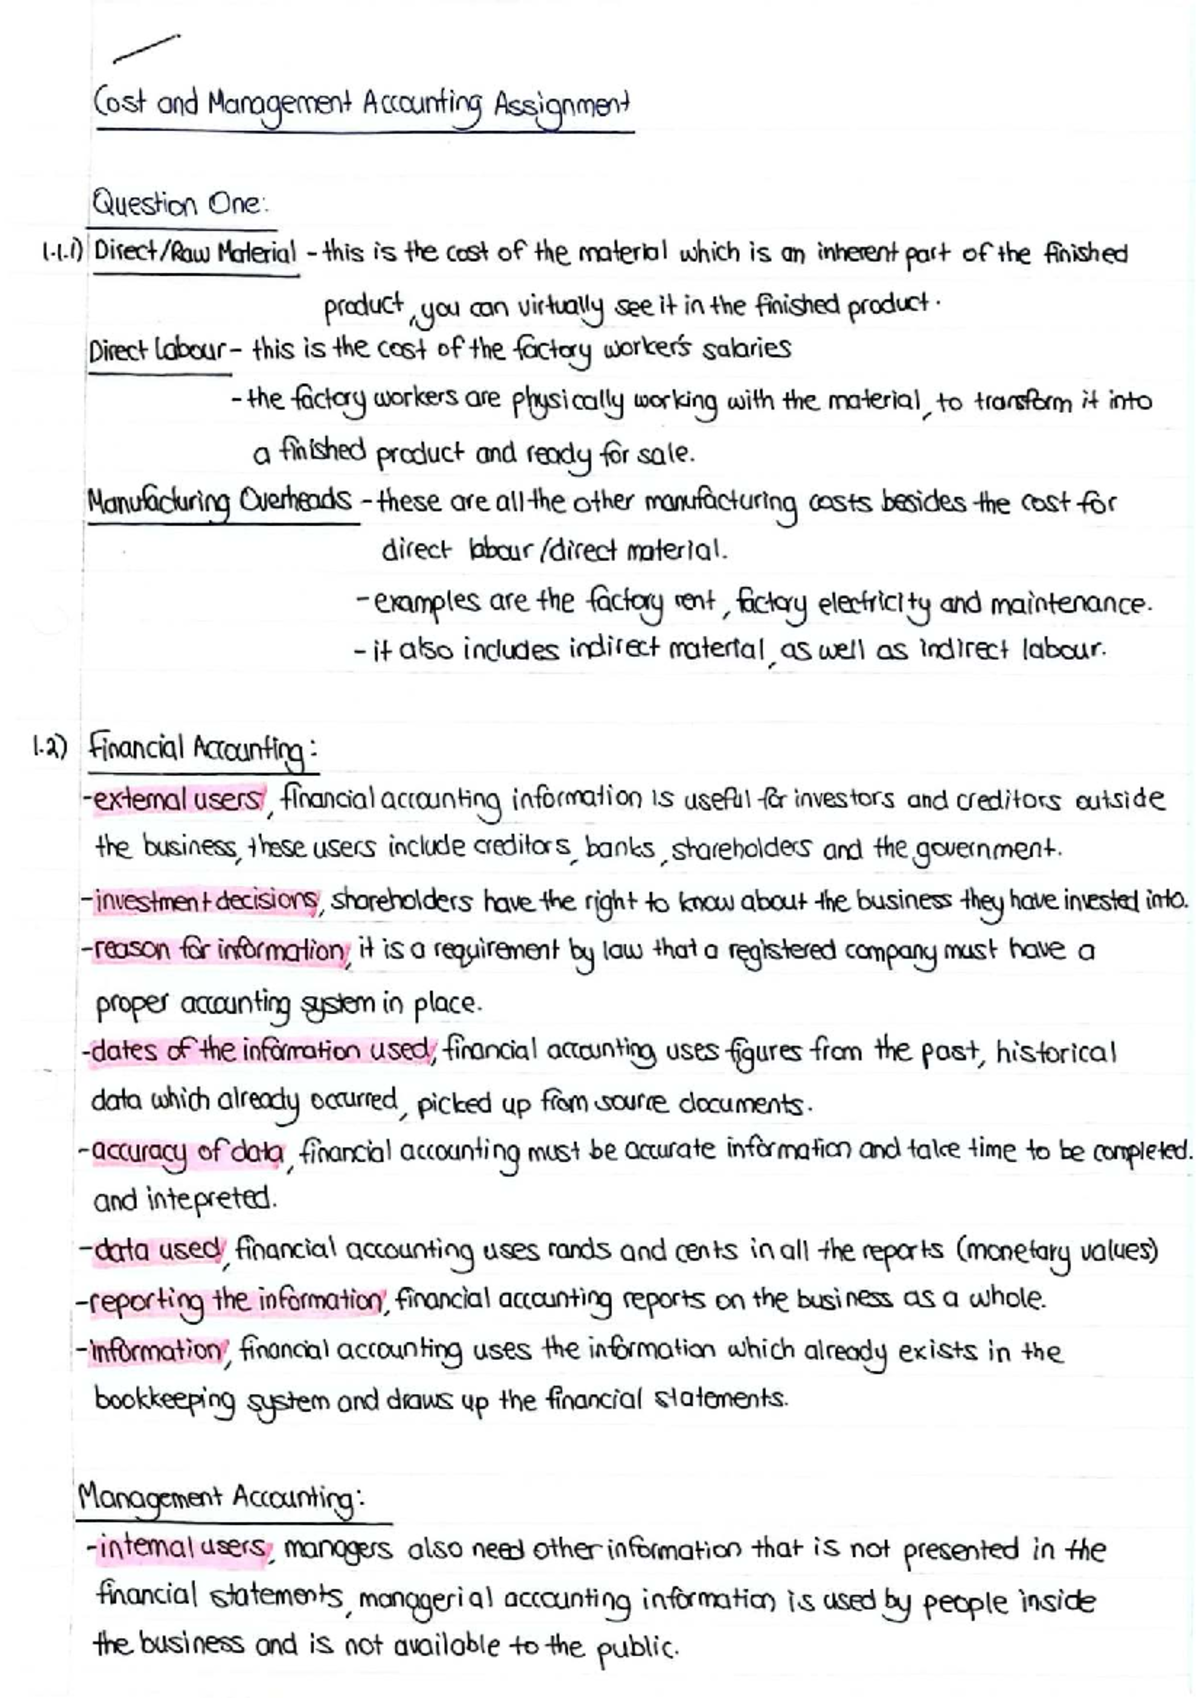 Cost and Management Accounting Assignment
Question One:
1.1.1) Direct/Raw Material - this is the cost of the material which is an inherent part of the finished
product, you can virtually see it in the finished product.
Direct Labour - this is the cost of the factory worker's salaries
- the factory workers are physically working with the material, to transform it into
a finished product and ready for sale.
Manufacturing Overheads - these are all the other manufacturing costs besides the cost for
direct labour/direct material.
- examples are the factory rent, factory electricity and maintenance.
- it also includes indirect material, as well as indirect labour.
1.2) Financial Accounting:
- external users, financial accounting information is useful for investors and creditors outside
the business, these users include creditors, banks, shareholders and the government.
- investment decisions, shareholders have the right to know about the business they have invested into.
- reason for information, it is a requirement by law that a registered company must have a
proper accounting system in place.
- dates of the information used, financial accounting uses figures from the past, historical
data which already occurred, picked up from source documents.
- accuracy of data, financial accounting must be accurate information and take time to be completed.
and intepreted.
- data used, financial accounting uses rands and cents in all the reports (monetary values)
- reporting the information, financial accounting reports on the business as a whole.
- information, financial accounting uses the information which already exists in the
bookkeeping system and draws up the financial statements.
Management Accounting:
- internal users, managers also need other information that is not presented in the
financial statements, managerial accounting information is used by people inside
the business and is not available to the public.